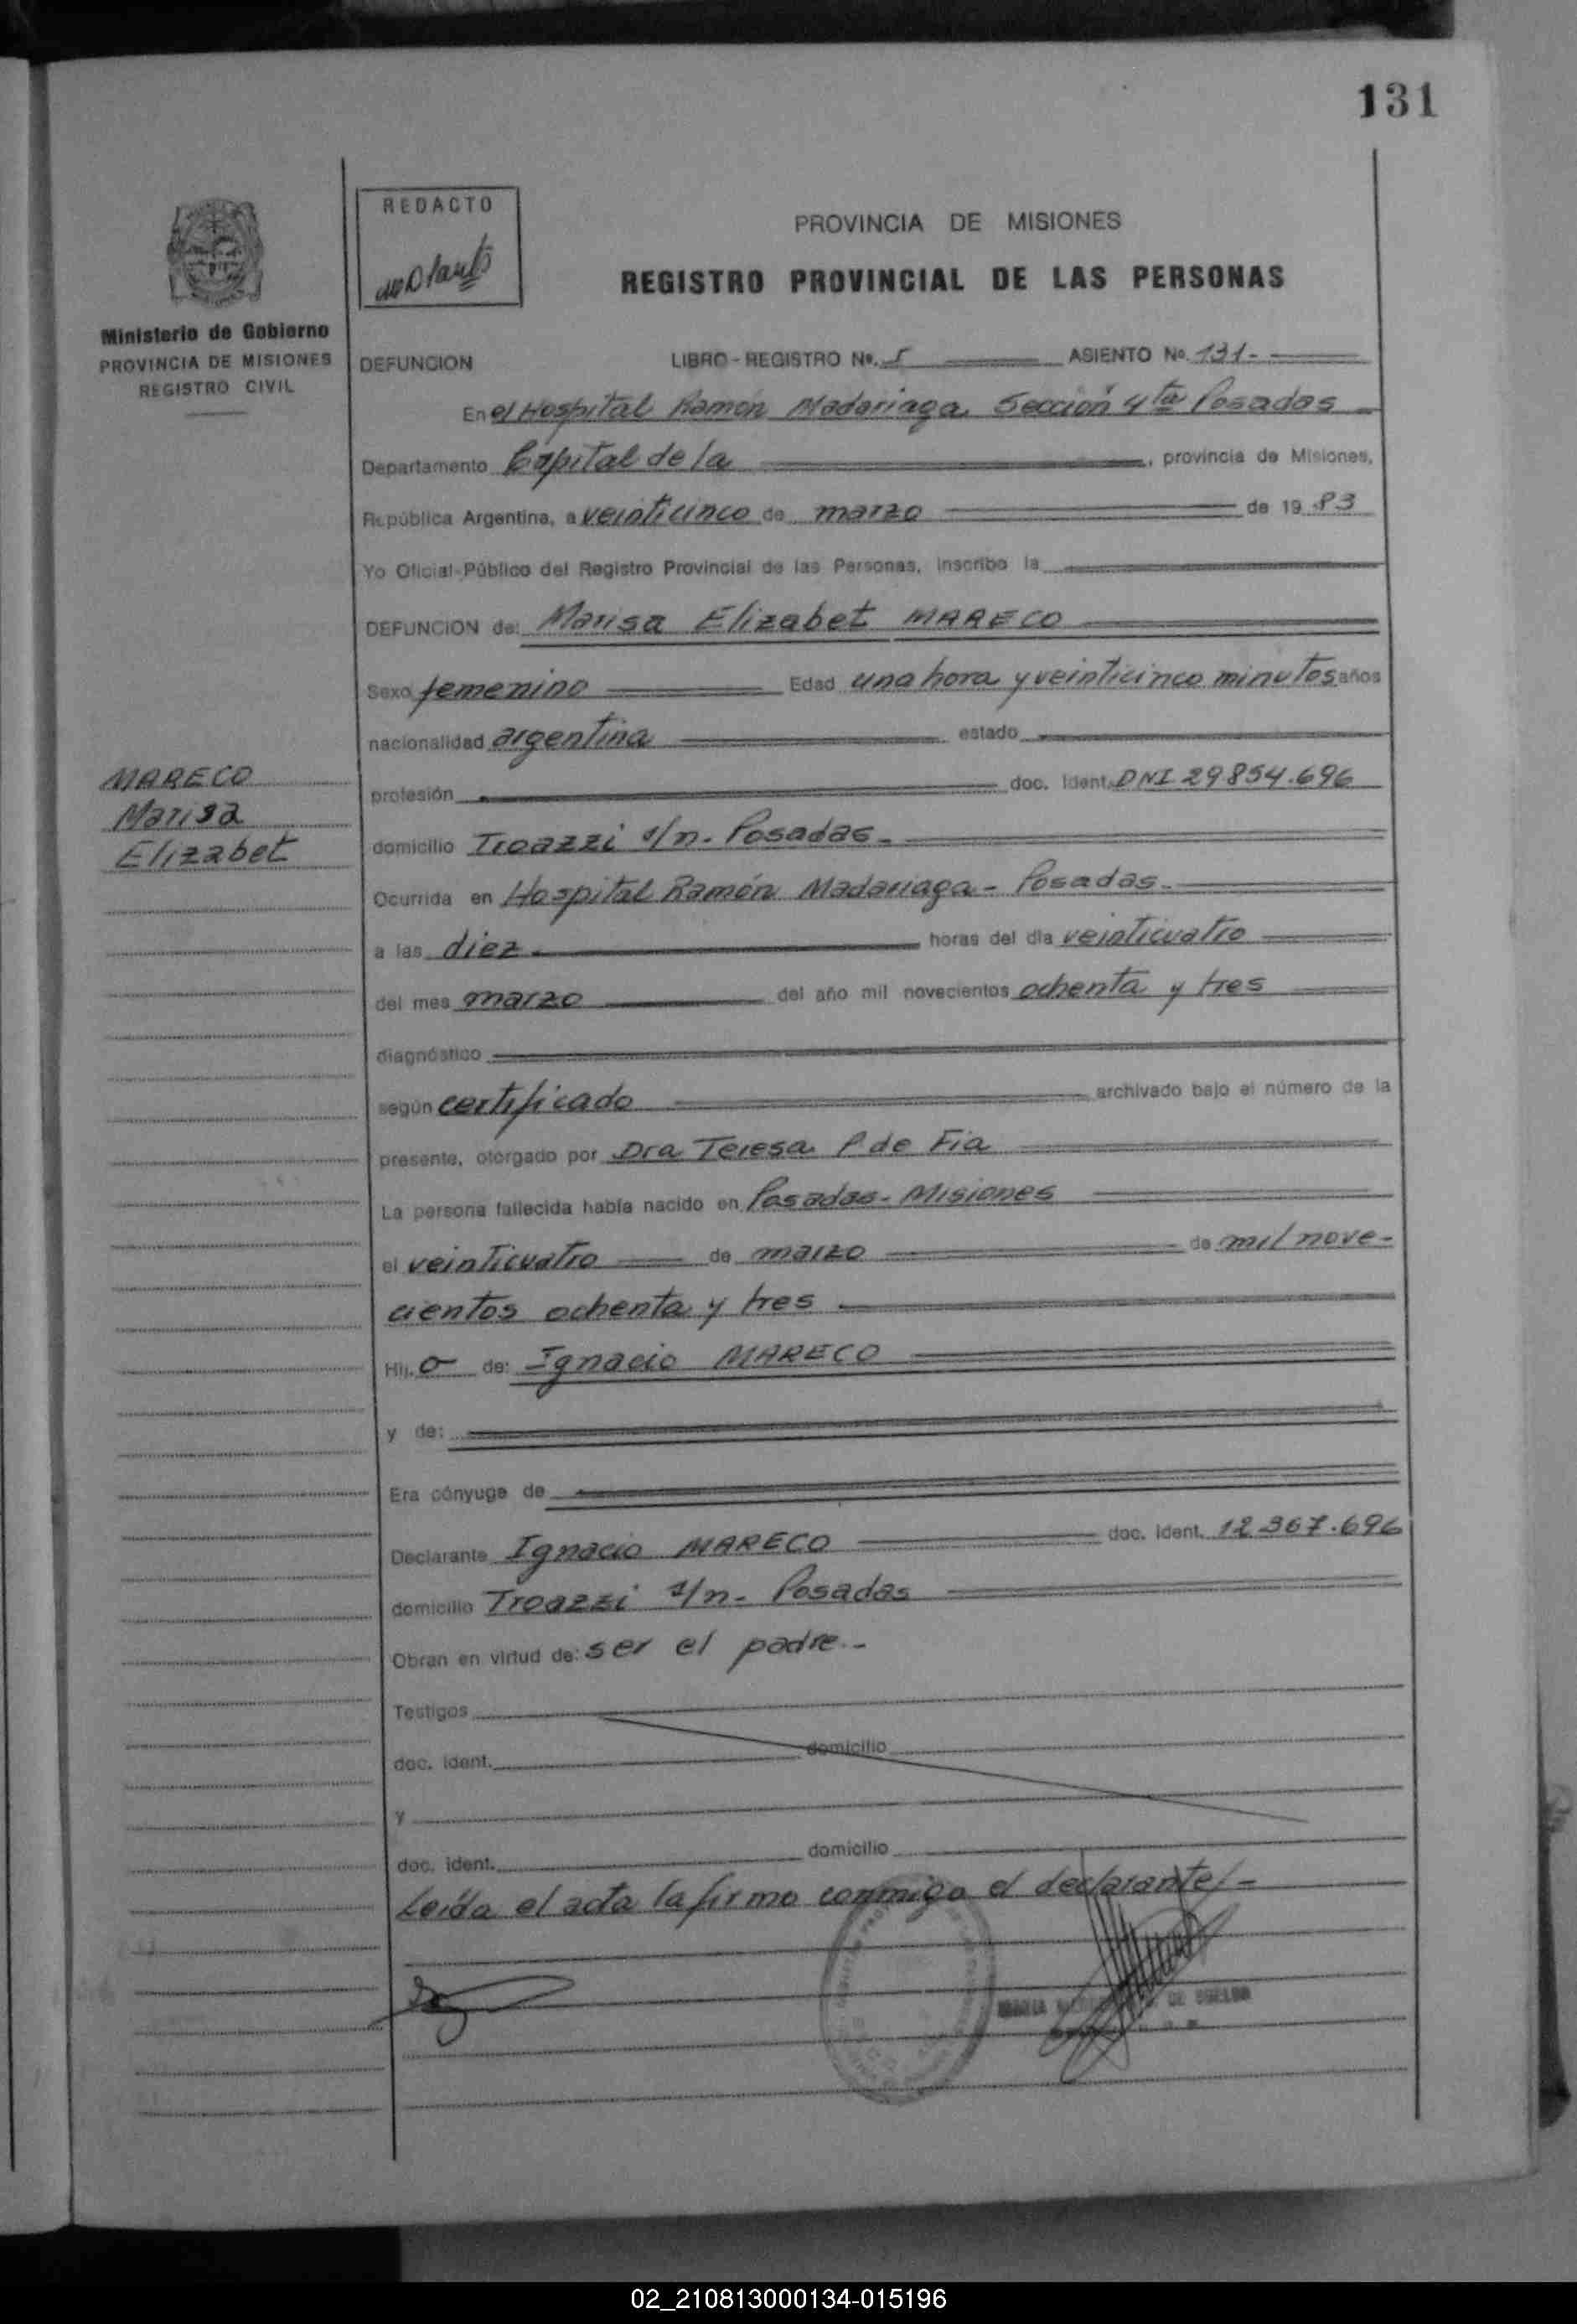 131
REDACTO
PROVINCIA DE MISIONES
REGISTRO PROVINCIAL DE LAS PERSONAS
Ministerio de Gobierno
PROVINCIA DE MISIONES
REGISTRO CIVIL
DEFUNCION LIBRO-REGISTRO Nº. 5 ASIENTO Nº. 131.-
En el Hospital Ramón Madariaga Sección 4ta Posadas
Departamento Capital de la , provincia de Misiones,
República Argentina, a veinticinco de marzo de 19 83
Yo Oficial Público del Registro Provincial de las Personas, inscribo la
DEFUNCION de: Marisa Elizabet MARECO
Sexo femenino Edad una hora y veinticinco minutos años
nacionalidad argentina estado
MARECO
Marisa
Elizabet
profesión doc. ident. DNI 29854.696
domicilio Troazzi s/n. Posadas.
Ocurrida en Hospital Ramón Madariaga - Posadas.
a las diez horas del día veinticuatro
del mes marzo del año mil novecientos ochenta y tres
diagnóstico
según certificado archivado bajo el número de la
presente, otorgado por Dra Teresa P de Fia
La persona fallecida había nacido en Posadas - Misiones
el veinticuatro de marzo de mil nove-
cientos ochenta y tres
Hij. o de: Ignacio MARECO
y de:
Era cónyuge de
Declarante Ignacio MARECO doc. ident. 12.367.696
domicilio Troazzi s/n. Posadas
Obran en virtud de: ser el padre.-
Testigos
doc. ident. domicilio
y
doc. ident. domicilio
Leída el acta la firma conmigo el declarante/-
02_210813000134-015196